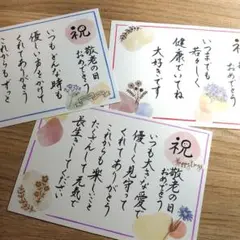 祝
敬老の日
おめでとう
いつもどんな時も
優しい声をかけて
くれてありがとう
これからもずっと
祝
おめでとう
いつまでも
若々しく
健康でいてね
大好きです
祝
敬老の日
おめでとう
いつも大きな愛で
優しく見守って
くれてありがとう
これからも楽しいこと
たくさんして元気で
長生きしてください